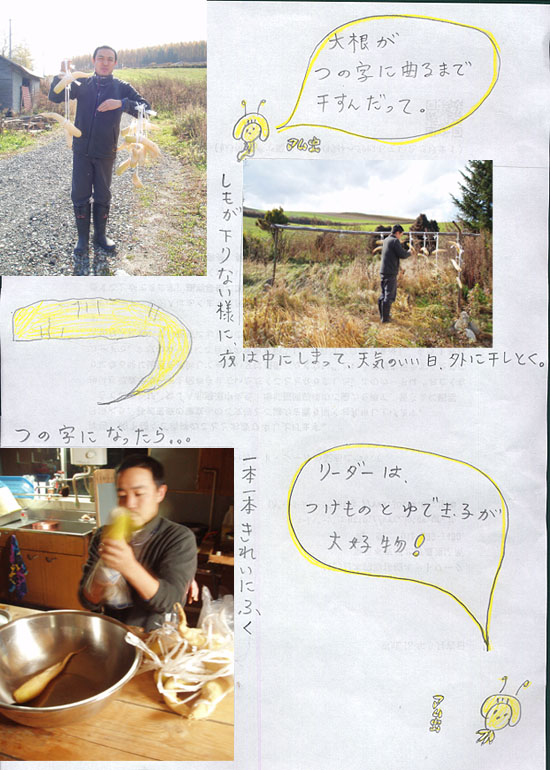 大根が
つの字に曲るまで
干すんだって。
アム虫
しもが下りない様に、
夜は中にしまって、天気のいい日、外に干しとく。
つの字になったら...
一本一本きれいにふく
リーダーは、
つけものとゆでき子が
大好物!
アム虫